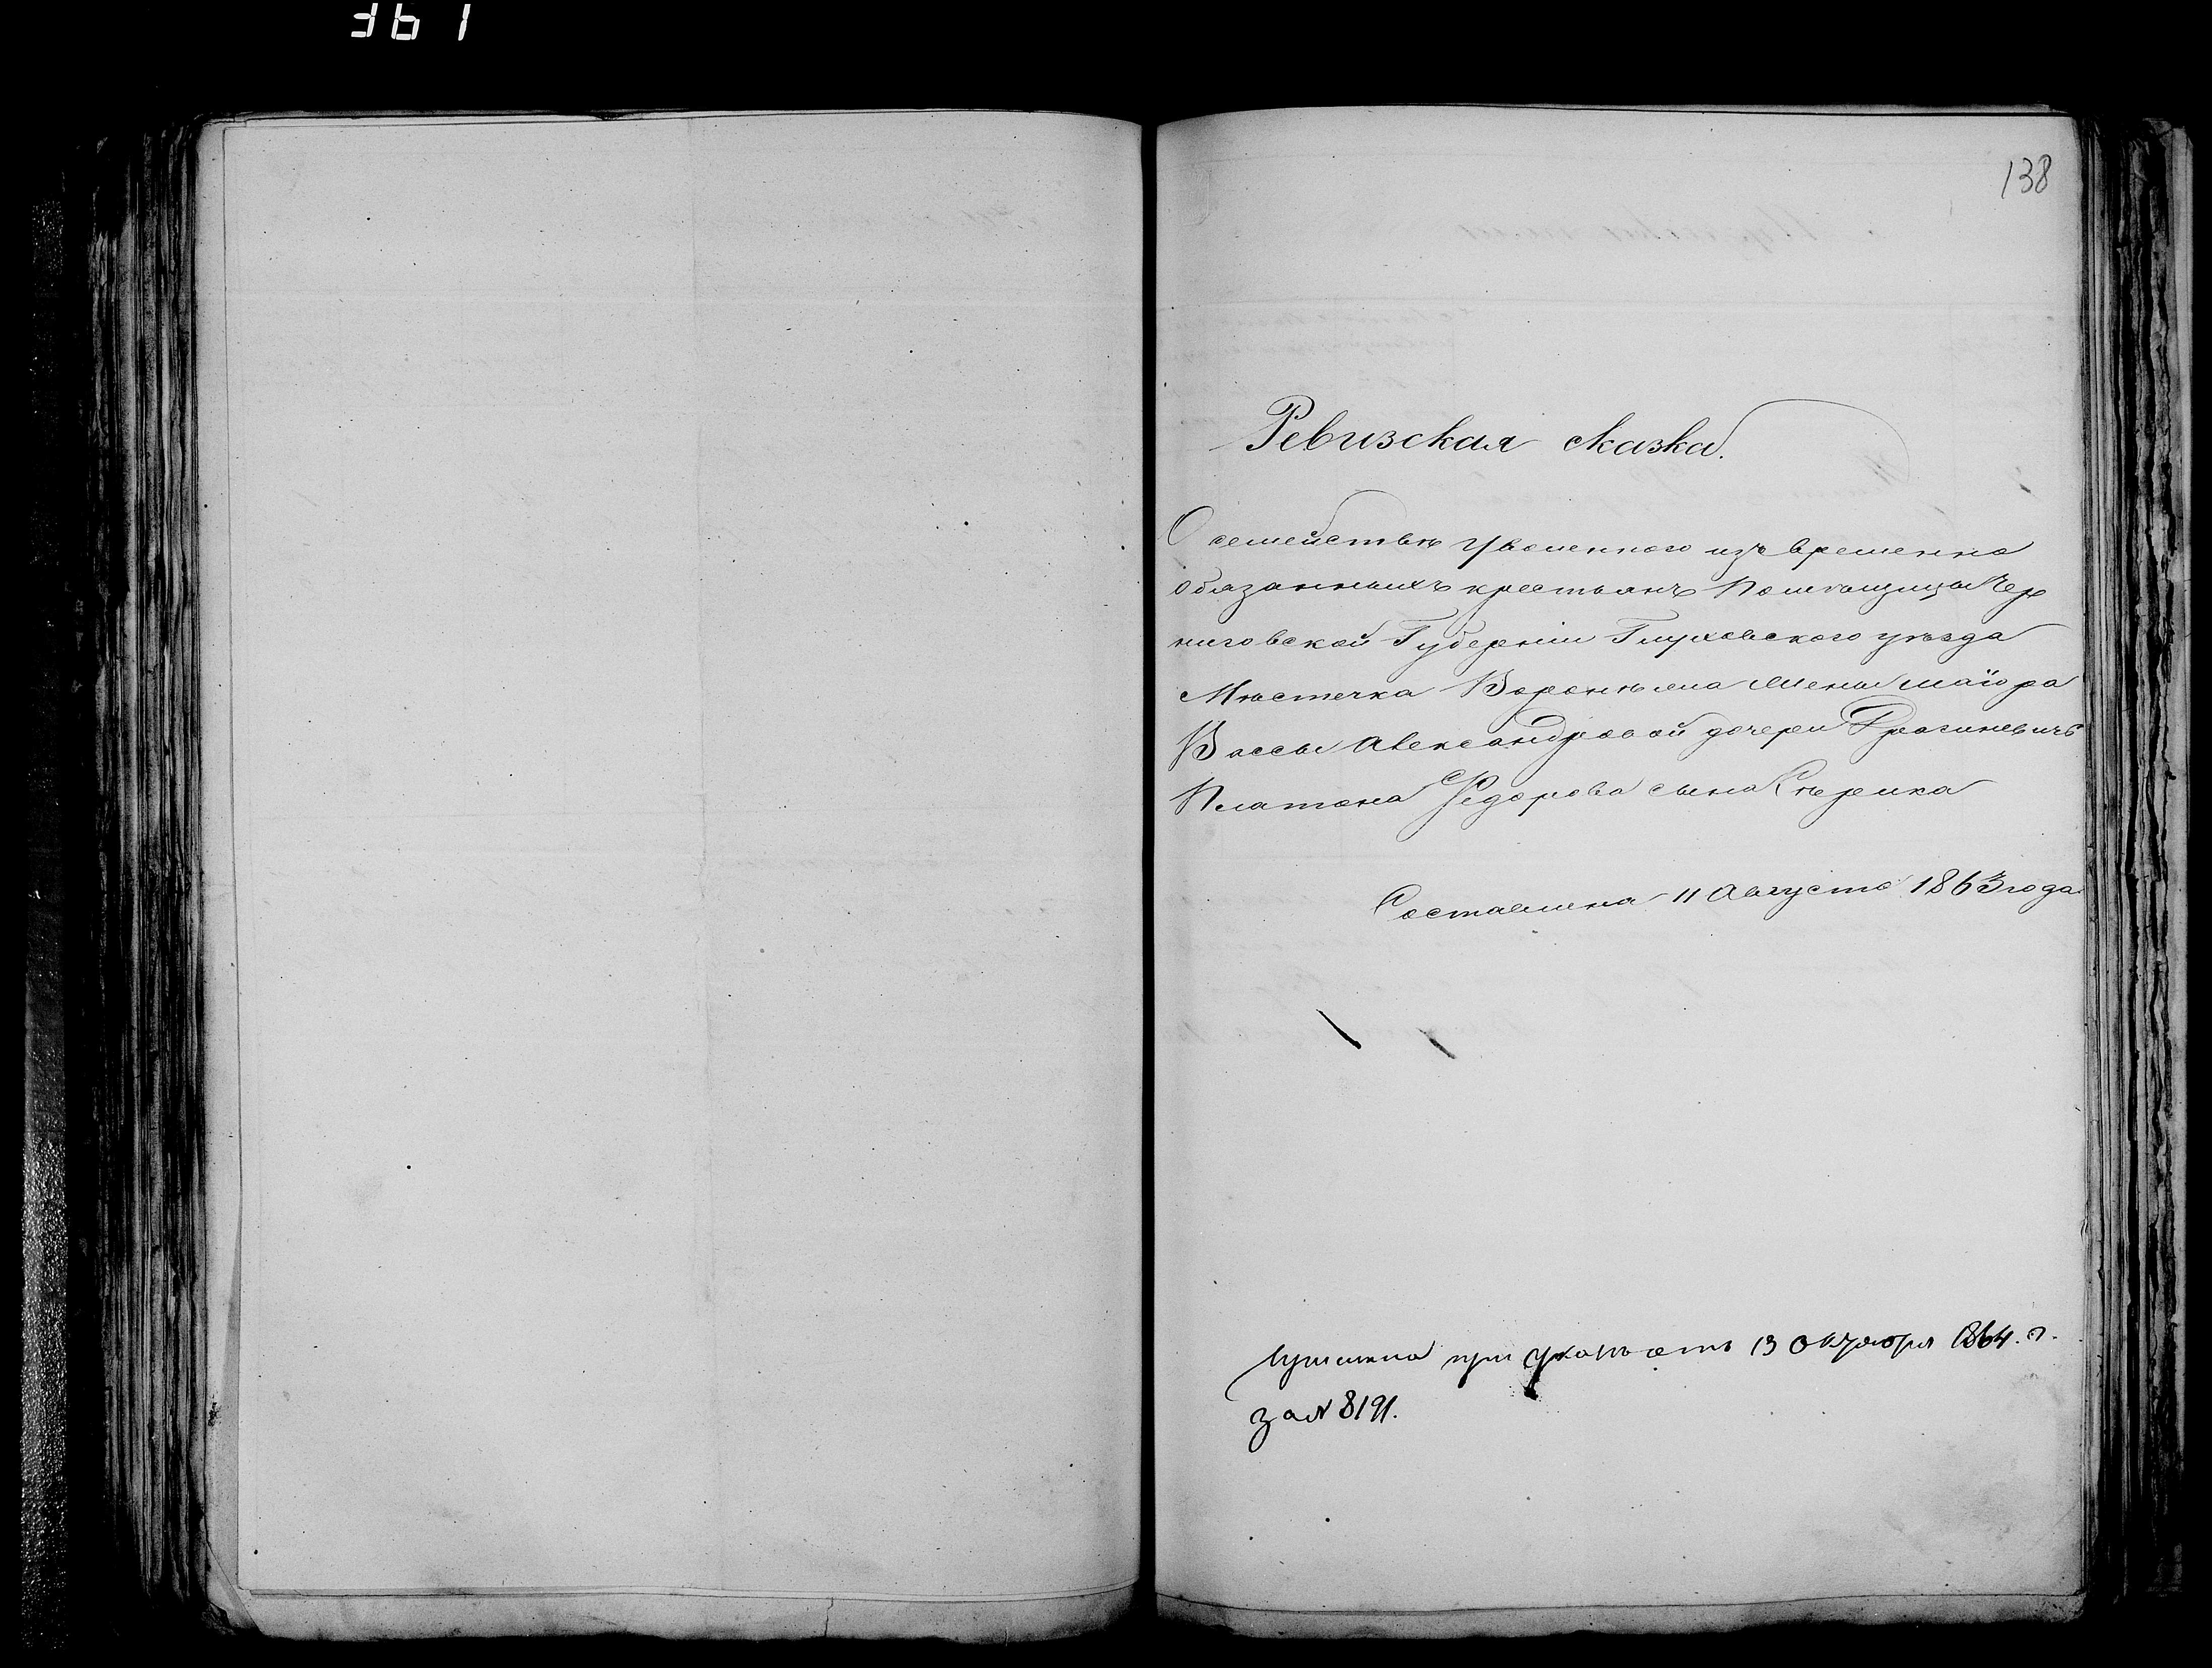 361
138
Ревизская сказка.
О семействѣ уволеннаго изъ временно
обязанныхъ крестьянъ Помѣщицы Чер
ниговской Губерніи Глуховского уѣзда
Мѣстечка Воронѣжа жены маіора
Вассы Александровой дочери
Платона Федорова сына
Составлена 11 Августа 1863 года
при указѣ 13 Октября 1864. г.
за № 8191.